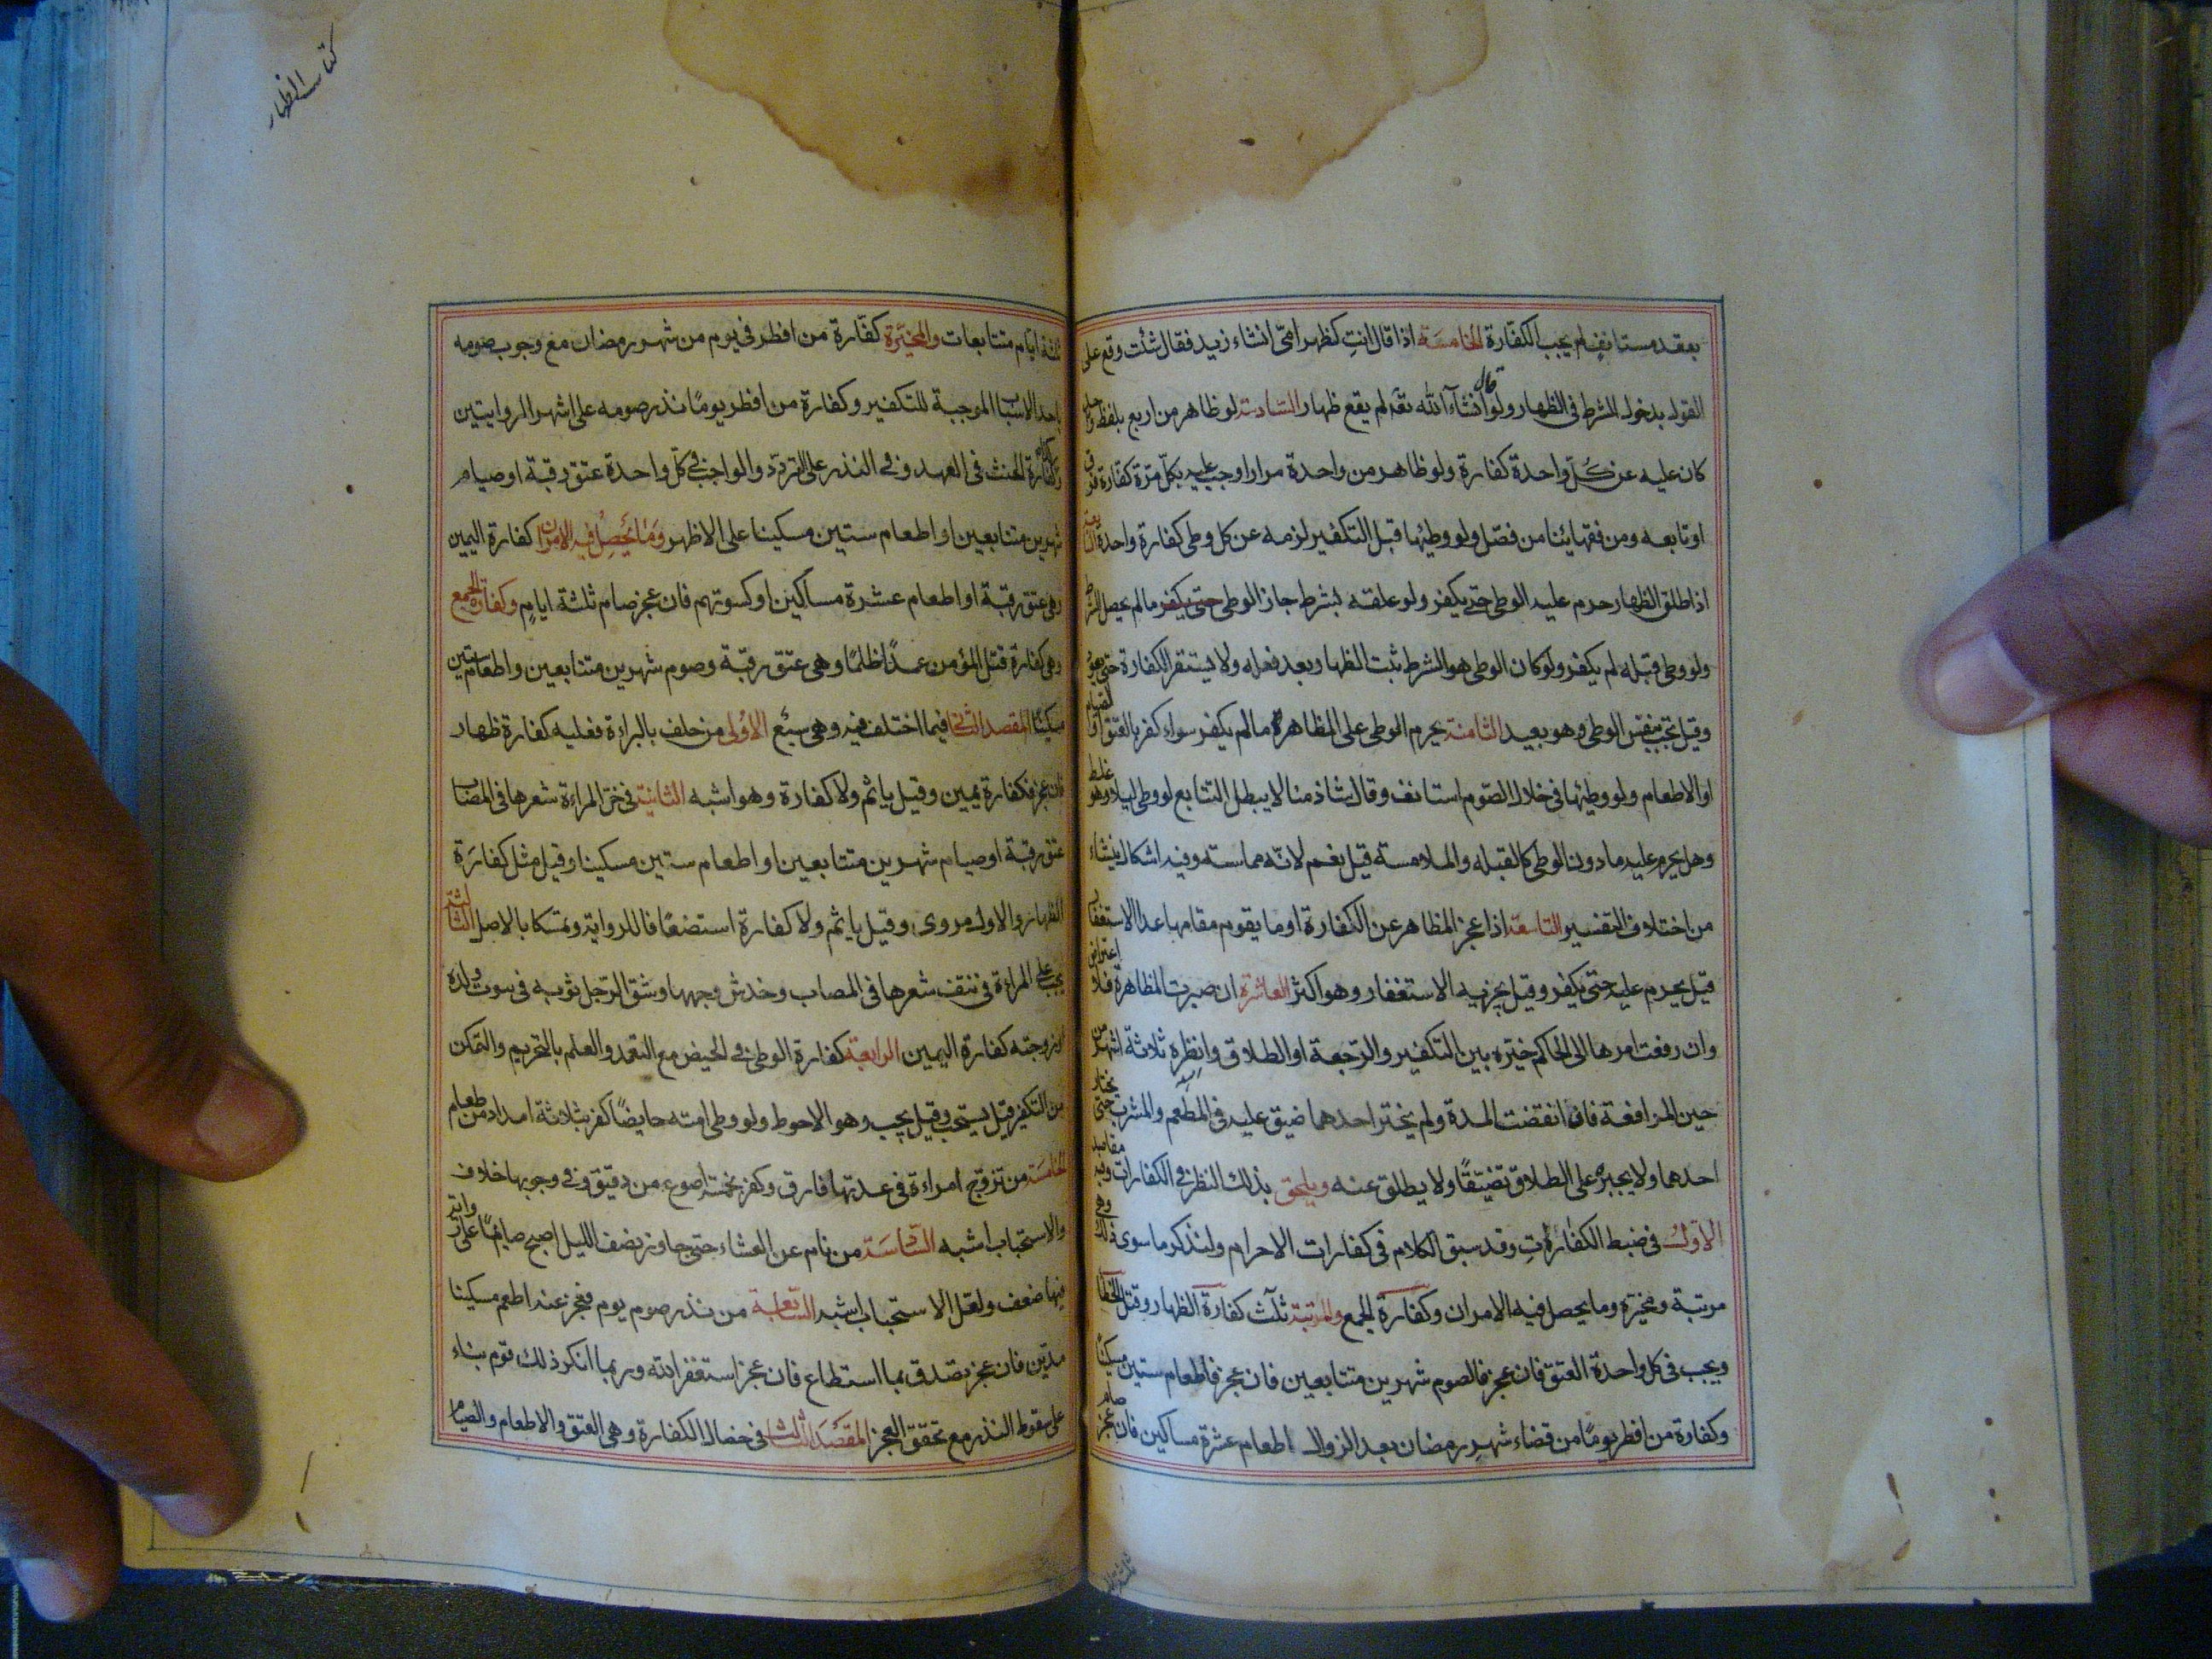 بعقد مستانف لم يجب الكفارة الخامسة اذا قال انت كظهر امى ان شاء زيد فقال شئت وقع على
القول بدخول الشرط فى الظهار ولو قال ان شاء الله تعه لم يقع ظهار السادسة لو ظاهر من اربع بلفظ واحد
كان عليه عن كل واحدة كفارة ولو ظاهر من واحدة مرارا وجب عليه بكل مرة كفارة فرق
او تابعه ومن فقهائنا من فصل ولو وطيها قبل التكفير لزمه عن كل وطى كفارة واحدة السابعة
اذا طلق الظهار حرم عليه الوطى حتى يكفر ولو علقه بشرط جاز الوطى حتى يكفر ما لم يحصل الشرط
ولو وطى قبله لم يكفر ولو كان الوطى هو الشرط ثبت الظهار بعد فعله ولا يستقر الكفارة حتى يعود
وقيل تجب بنفس الوطى وهو بعيد الثامنة يحرم الوطى على المظاهر ما لم يكفر سواء كفر بالعتق او الصيام
او الاطعام ولو وطيها فى خلال الصوم استانف وقال شاذ منا لا يبطل التتابع لو وطى ليلا وهو غلط
وهل يحرم عليه ما دون الوطى كالقبله والملامسة قيل نعم لانه مماسة وفيه اشكال ينشاء
من اختلاف التفسير التاسعة اذا عجز المظاهر عن الكفارة او ما يقوم مقامها عدا الاستغفار
قيل يحرم عليه حتى يكفر وقيل يجزيه الاستغفار وهو اكثر العاشرة ان صبرت المظاهرة فلا اعتراض
وان رفعت امرها الى الحاكم خيره بين التكفير والرجعة او الطلاق وانظره ثلاثة اشهر من
حين المرافعة فان انقضت المدة ولم يختر احدهما ضيق عليه فى المطعم والمشرب حتى يختار
احدهما ولا يجبره على الطلاق تضيقا ولا يطلق عنه ويلحق بذلك النظر فى الكفارات وفيه مقاصد
الاول فى ضبط الكفارات وقد سبق الكلام فى كفارات الاحرام ولنذكر ما سوى ذلك وهى
مرتبة ومخيرة وما يحصل فيه الامران وكفارة الجمع والمرتبة ثلث كفارة الظهار وقتل الخطا
ويجب فى كل واحدة العتق فان عجز فالصوم شهرين متتابعين فان عجز فاطعام ستين مسكينا
وكفارة من افطر يوما من قضاء شهر رمضان بعد الزوال اطعام عشرة مساكين فان عجز صام
كتاب الظهار
ثلثة ايام متتابعات والمخيرة كفارة من افطر فى يوم من شهر رمضان مع وجوب صومه
باحد الاسباب الموجبة للتكفير وكفارة من افطر يوما نذر صومه على اشهر الروايتين
وكذا كفارة الحنث فى العهد وفى النذر على التردد والواجب فى كل واحدة عتق رقبة او صيام
شهرين متتابعين او اطعام ستين مسكينا على الاظهر وما يحصل فيه الامران كفارة اليمين
وهى عتق رقبة او اطعام عشرة مساكين او كسوتهم فان عجز صام ثلثة ايام وكفارة الجمع
وهى كفارة قتل المؤمن عمدا ظلما وهى عتق رقبة وصوم شهرين متتابعين واطعام ستين
مسكينا المقصد الثانى فيما اختلف فيه وهى سبع الاولى من حلف بالبراءة فعليه كفارة ظهار
فان عجز فكفارة يمين وقيل ياثم ولا كفارة وهو اشبه الثانية فى جز المراءة شعرها فى المصاب
عتق رقبة او صيام شهرين متتابعين او اطعام ستين مسكينا وقيل مثل كفارة
الظهار والاول مروى وقيل ياثم ولا كفارة استضعافا للرواية وتمسكا بالاصل الثالثة
يجب على المراءة فى نتف شعرها فى المصاب وخدش وجهها وشق الرجل ثوبه فى موت ولده
او زوجته كفارة اليمين الرابعة كفارة الوطى فى الحيض مع التعمد والعلم بالتحريم والتمكن
من التكفير قيل يستحب وقيل يجب وهو الاحوط ولو وطى امته حايضا كفر بثلاثة امداد من طعام
الخامسة من تزوج امراءة فى عدتها فارق وكفر بخمسة اصوع من دقيق وفى وجوبها خلاف
والاستحباب اشبه السادسة من نام عن العشاء حتى جاوز نصف الليل اصبح صائما على رواية
فيها ضعف ولعل الاستحباب اشبه السابعة من نذر صوم يوم فعجز عنه اطعم مسكينا
مدين فان عجز تصدق بما استطاع فان عجز استغفر الله وربما انكر ذلك قوم بناء
على سقوط النذر مع تحقق العجز المقصد الثالث فى خصال الكفارة وهى العتق والاطعام والصيام